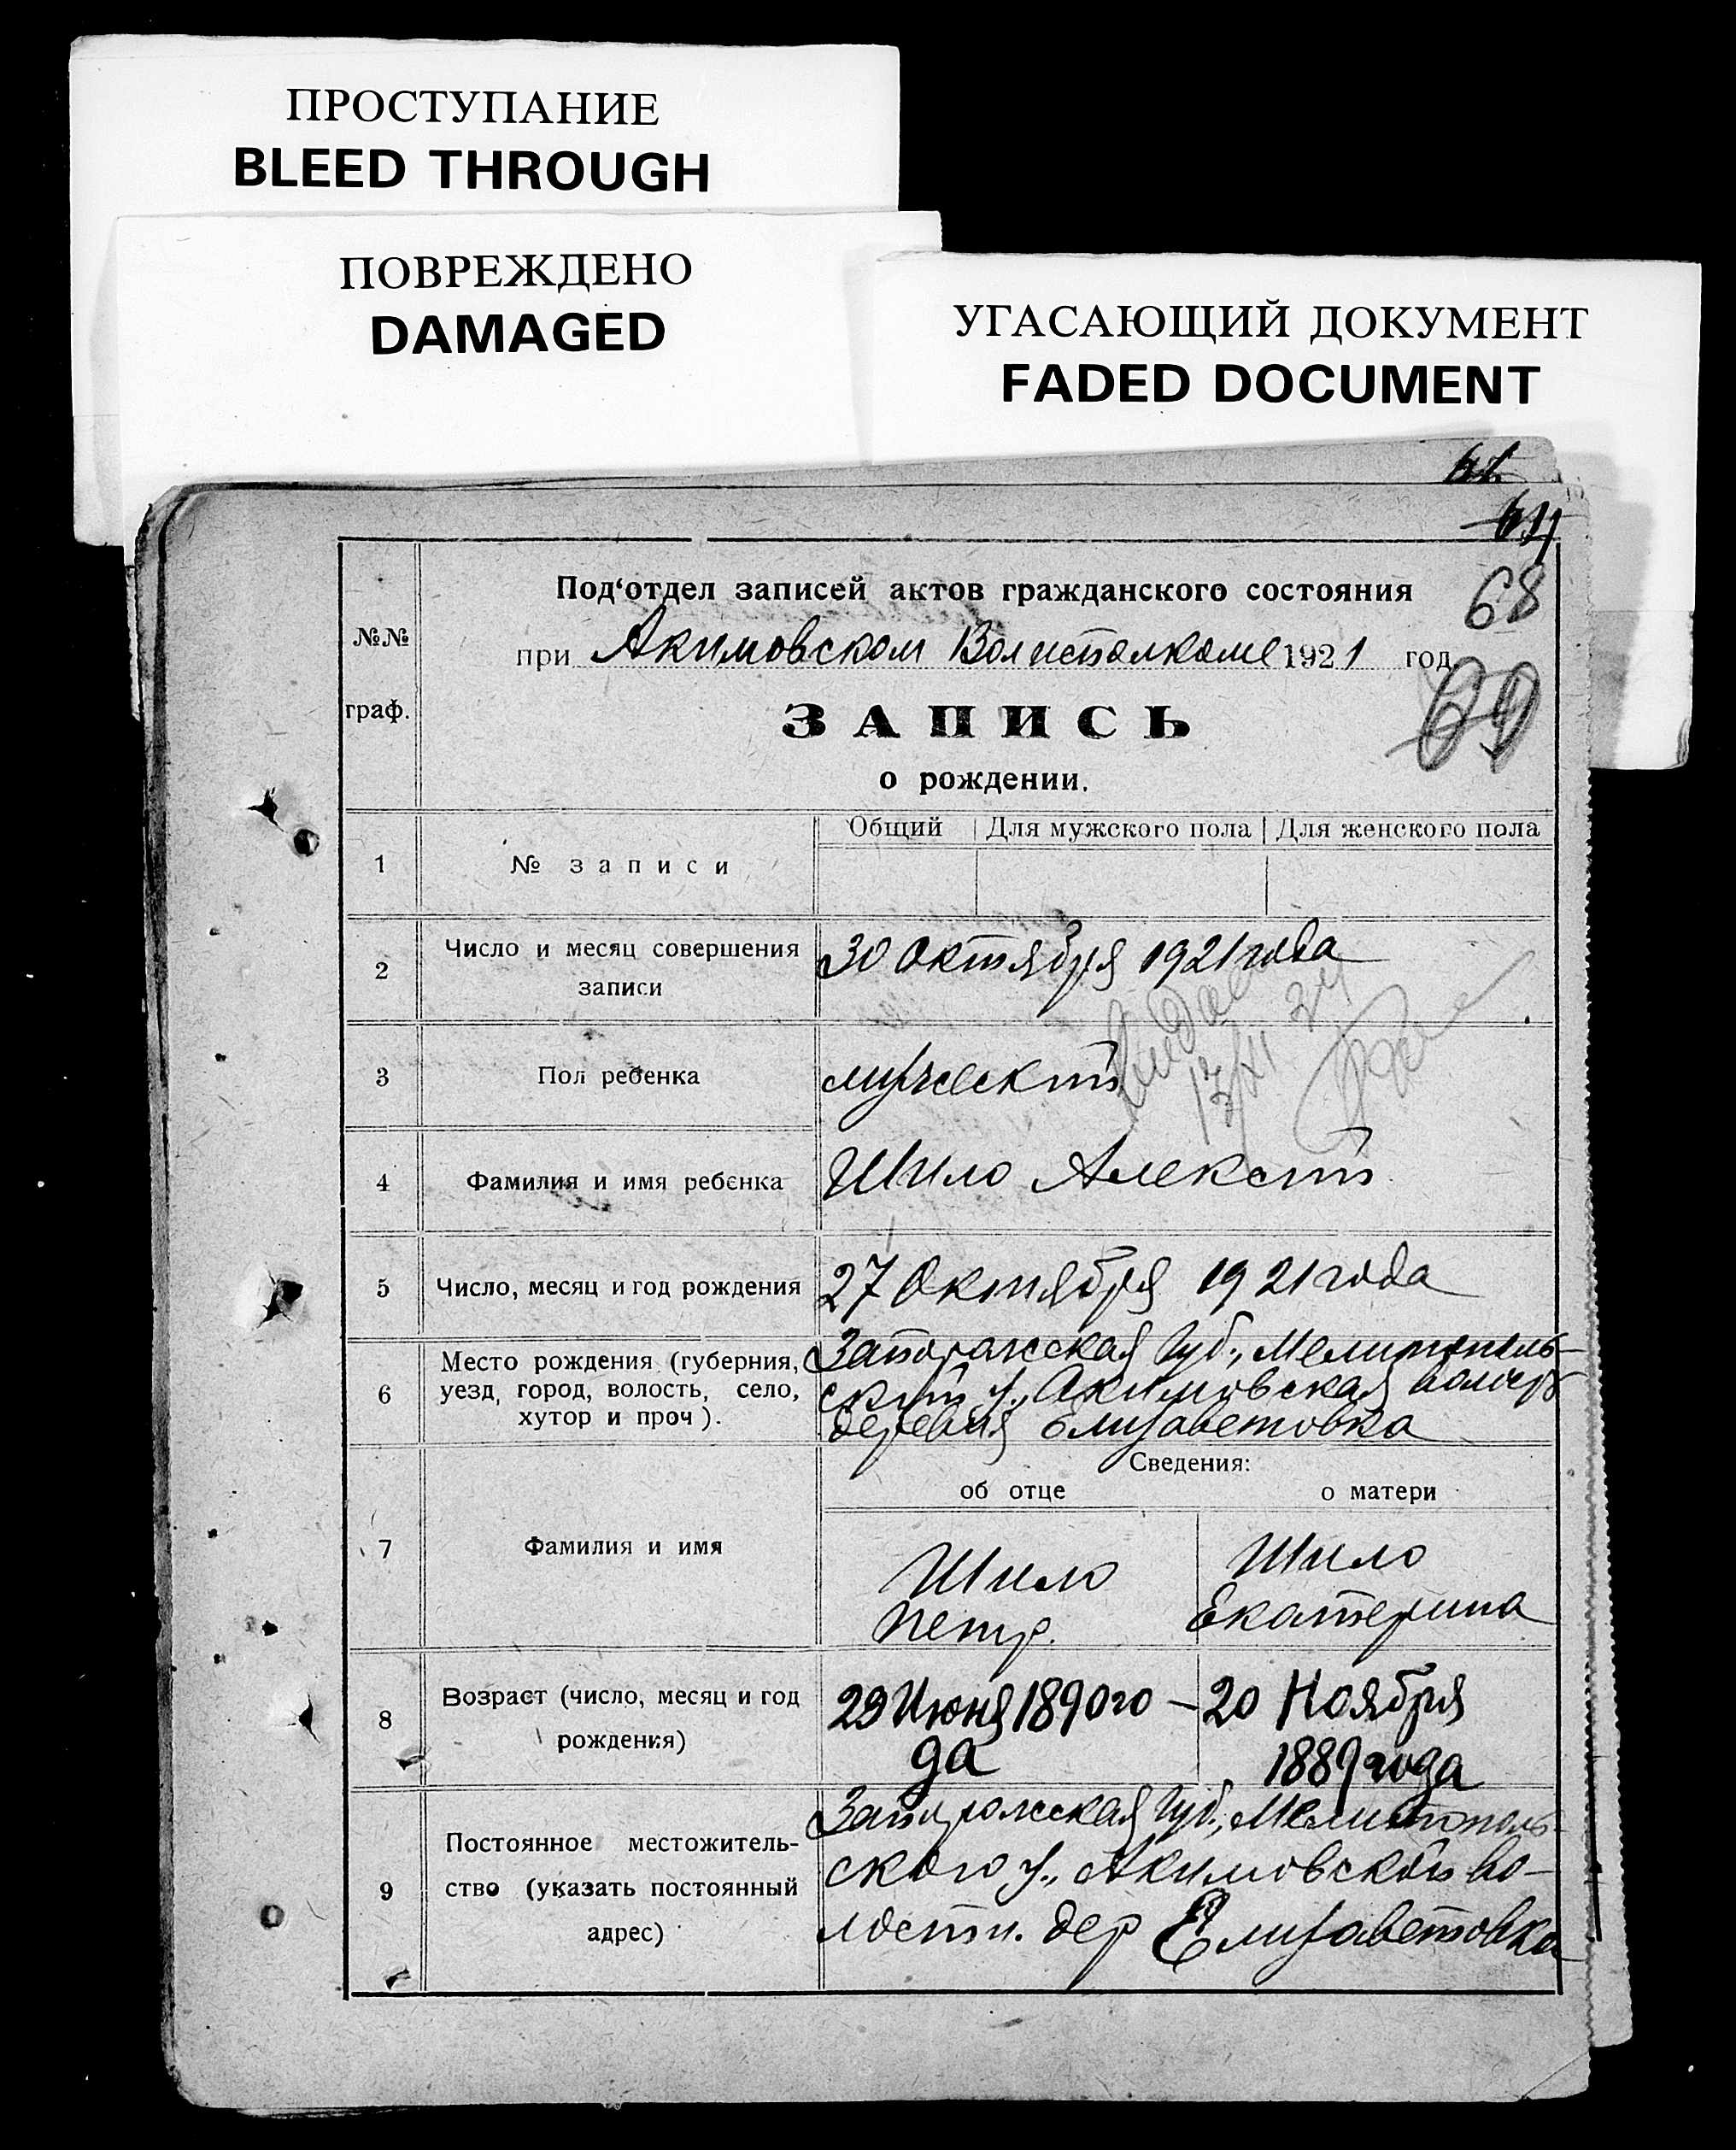 ПРОСТУПАНИЕ
BLEED THROUGH
ПОВРЕЖДЕНО
DAMAGED
УГАСАЮЩИЙ ДОКУМЕНТ
FADED DOCUMENT
68
69
№№ граф.
Под‘отдел записей актов гражданского состояния
при Акимовском Волисполкоме 1921 год.
ЗАПИСЬ
о рождении.
Общий Для мужского пола Для женского пола
1 № записи
2 Число и месяц совершения записи 30 Октября 1921 года
Выдан
3 Пол ребенка мужской
4 Фамилия и имя ребенка Шило Алексей
5 Число, месяц и год рождения 27 Октября 1921 года
6 Место рождения (губерния,
уезд, город, волость, село,
хутор и проч).
Запорожская Губ., Мелитополь-
ский у., Акимовская
деревня Елизаветовка
Сведения:
об отце о матери
7 Фамилия и имя
Шило
Петр.
Шило
Екатерина
8 Возраст (число, месяц и год
рождения)
29 Июня 1890 го-
да
20 Ноября
1889 года
9 Постоянное местожитель-
ство (указать постоянный
адрес)
Запорожская Губ., Мелитополь-
ского у., Акимовской во-
лости. дер Елизаветовка